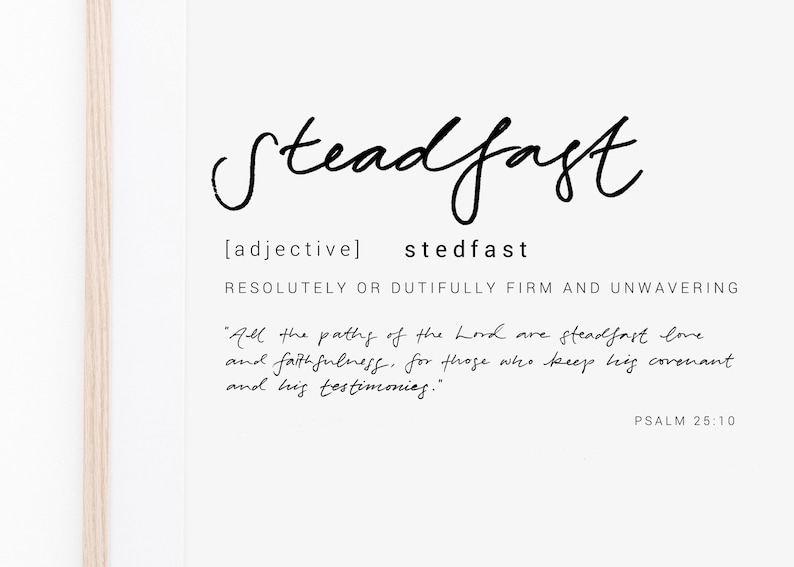 steadfast
[adjective] stedfast
RESOLUTELY OR DUTIFULLY FIRM AND UNWAVERING
"All the paths of the Lord are steadfast love
and faithfulness, for those who keep his covenant
and his testimonies."
PSALM 25:10